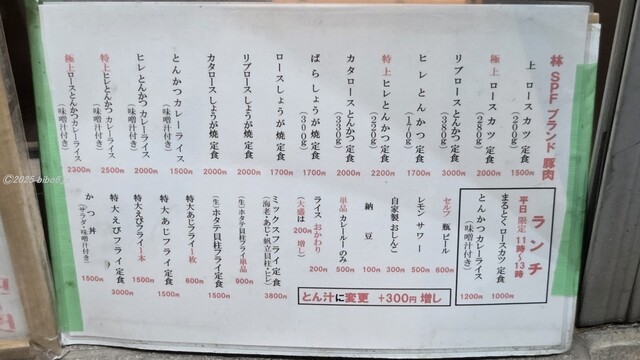 林SPFブランド豚肉
上ロースカツ定食
(200g)
1500円
極上ロースカツ定食
(280g)
2000円
リブロースとんかつ定食
(380g)
3000円
ヒレとんかつ定食
(170g)
1700円
特上ヒレとんかつ定食
(250g)
2200円
カタロースとんかつ定食
(330g)
2000円
ばらしょうが焼定食
(300g)
1700円
ロースしょうが焼定食
1700円
リブロースしょうが焼定食
2000円
カタロースしょうが焼定食
2000円
とんかつカレーライス
(味噌汁付き)
1500円
ヒレとんかつカレーライス
(味噌汁付き)
2000円
特上ヒレとんかつカレーライス
(味噌汁付き)
2500円
極上ロースとんかつカレーライス
(味噌汁付き)
2300円
ランチ
平日限定 11時〜13時
まるとくロースカツ定食
1000円
とんかつカレーライス
(味噌汁付き)
1200円
セルフ瓶ビール
600円
レモンサワー
500円
自家製おしんこ
300円
納豆
100円
単品カレールーのみ
500円
ライスおかわり
(大盛は200円増し)
200円
とん汁に変更 +300円 増し
ミックスフライ定食
(海老・あじ・帆立貝柱・ヒレ)
3800円
(生)ホタテ貝柱フライ単品
900円
(生)ホタテ貝柱フライ定食
1500円
特大あじフライ1枚
600円
特大あじフライ定食
1500円
特大えびフライ1本
1500円
特大えびフライ定食
3000円
かつ丼
(サラダ・味噌汁付き)
1500円